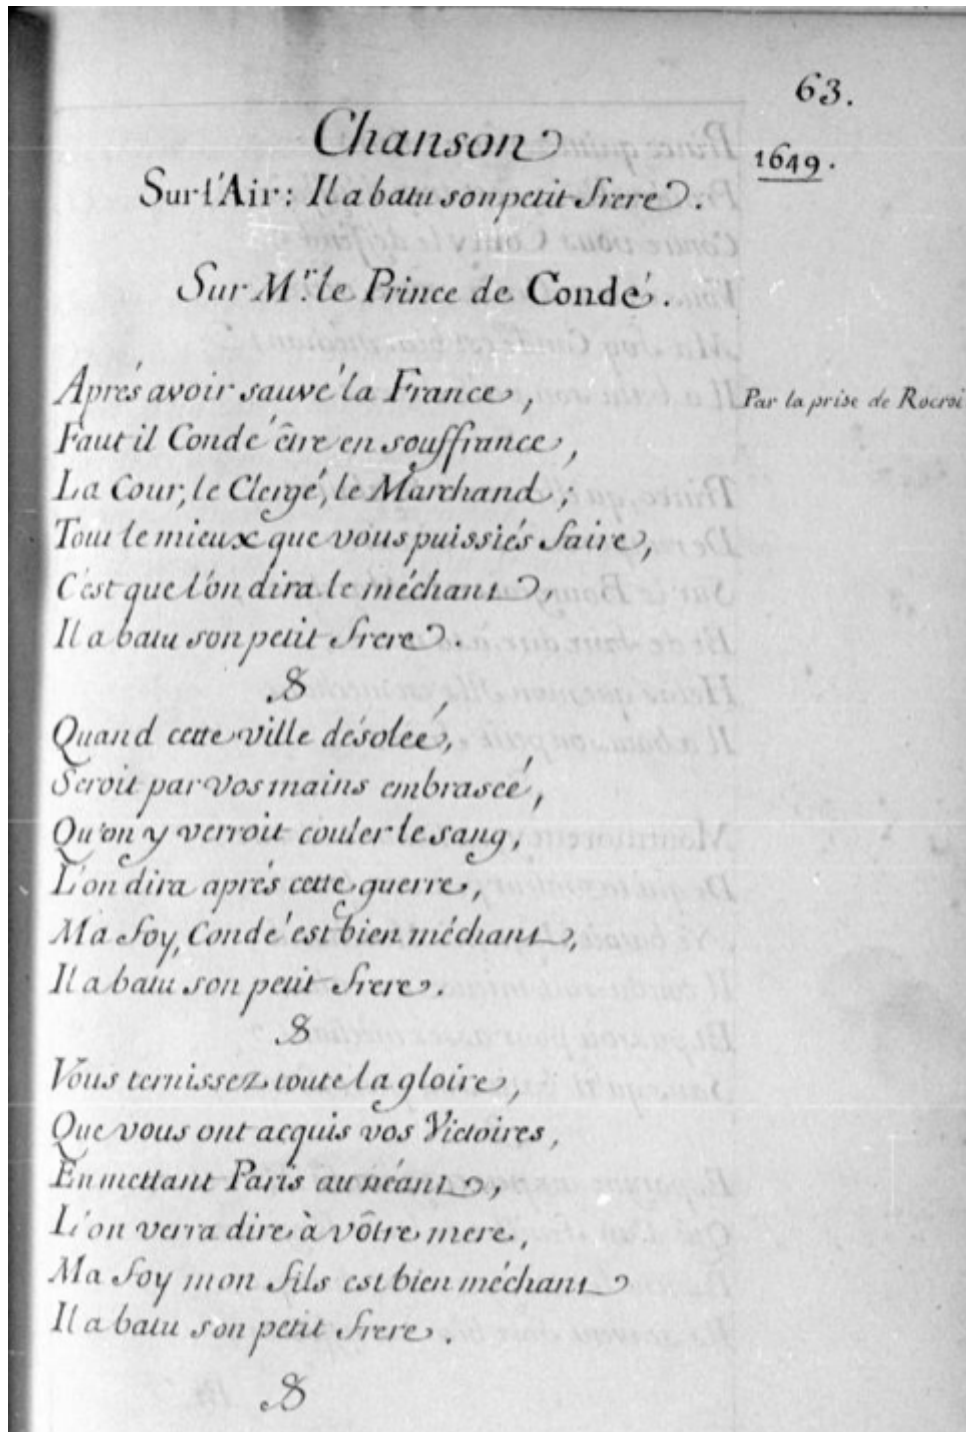 63.
Chanson
1649.
Sur l'Air: Il a batu son petit frere.
Sur Mr. le Prince de Condé.
Aprés avoir sauvé la France,
Par la prise de Rocroi
Faut il Condé être en souffrance,
La Cour, le Clergé, le Marchand;
Tout le mieux que vous puissiés faire,
C'est que l'on dira le méchant,
Il a batu son petit frere.
Quand cette ville désoleé,
Seroit par vos mains embraseé,
Qu'on y verroit couler le sang,
L'on dira aprés cette guerre,
Ma foy, Condé est bien méchant,
Il a batu son petit frere.
Vous ternissez toute la gloire,
Que vous ont acquis vos Victoires,
En mettant Paris au néant,
L'on verra dire à vôtre mere,
Ma foy mon fils est bien méchant
Il a batu son petit frere.